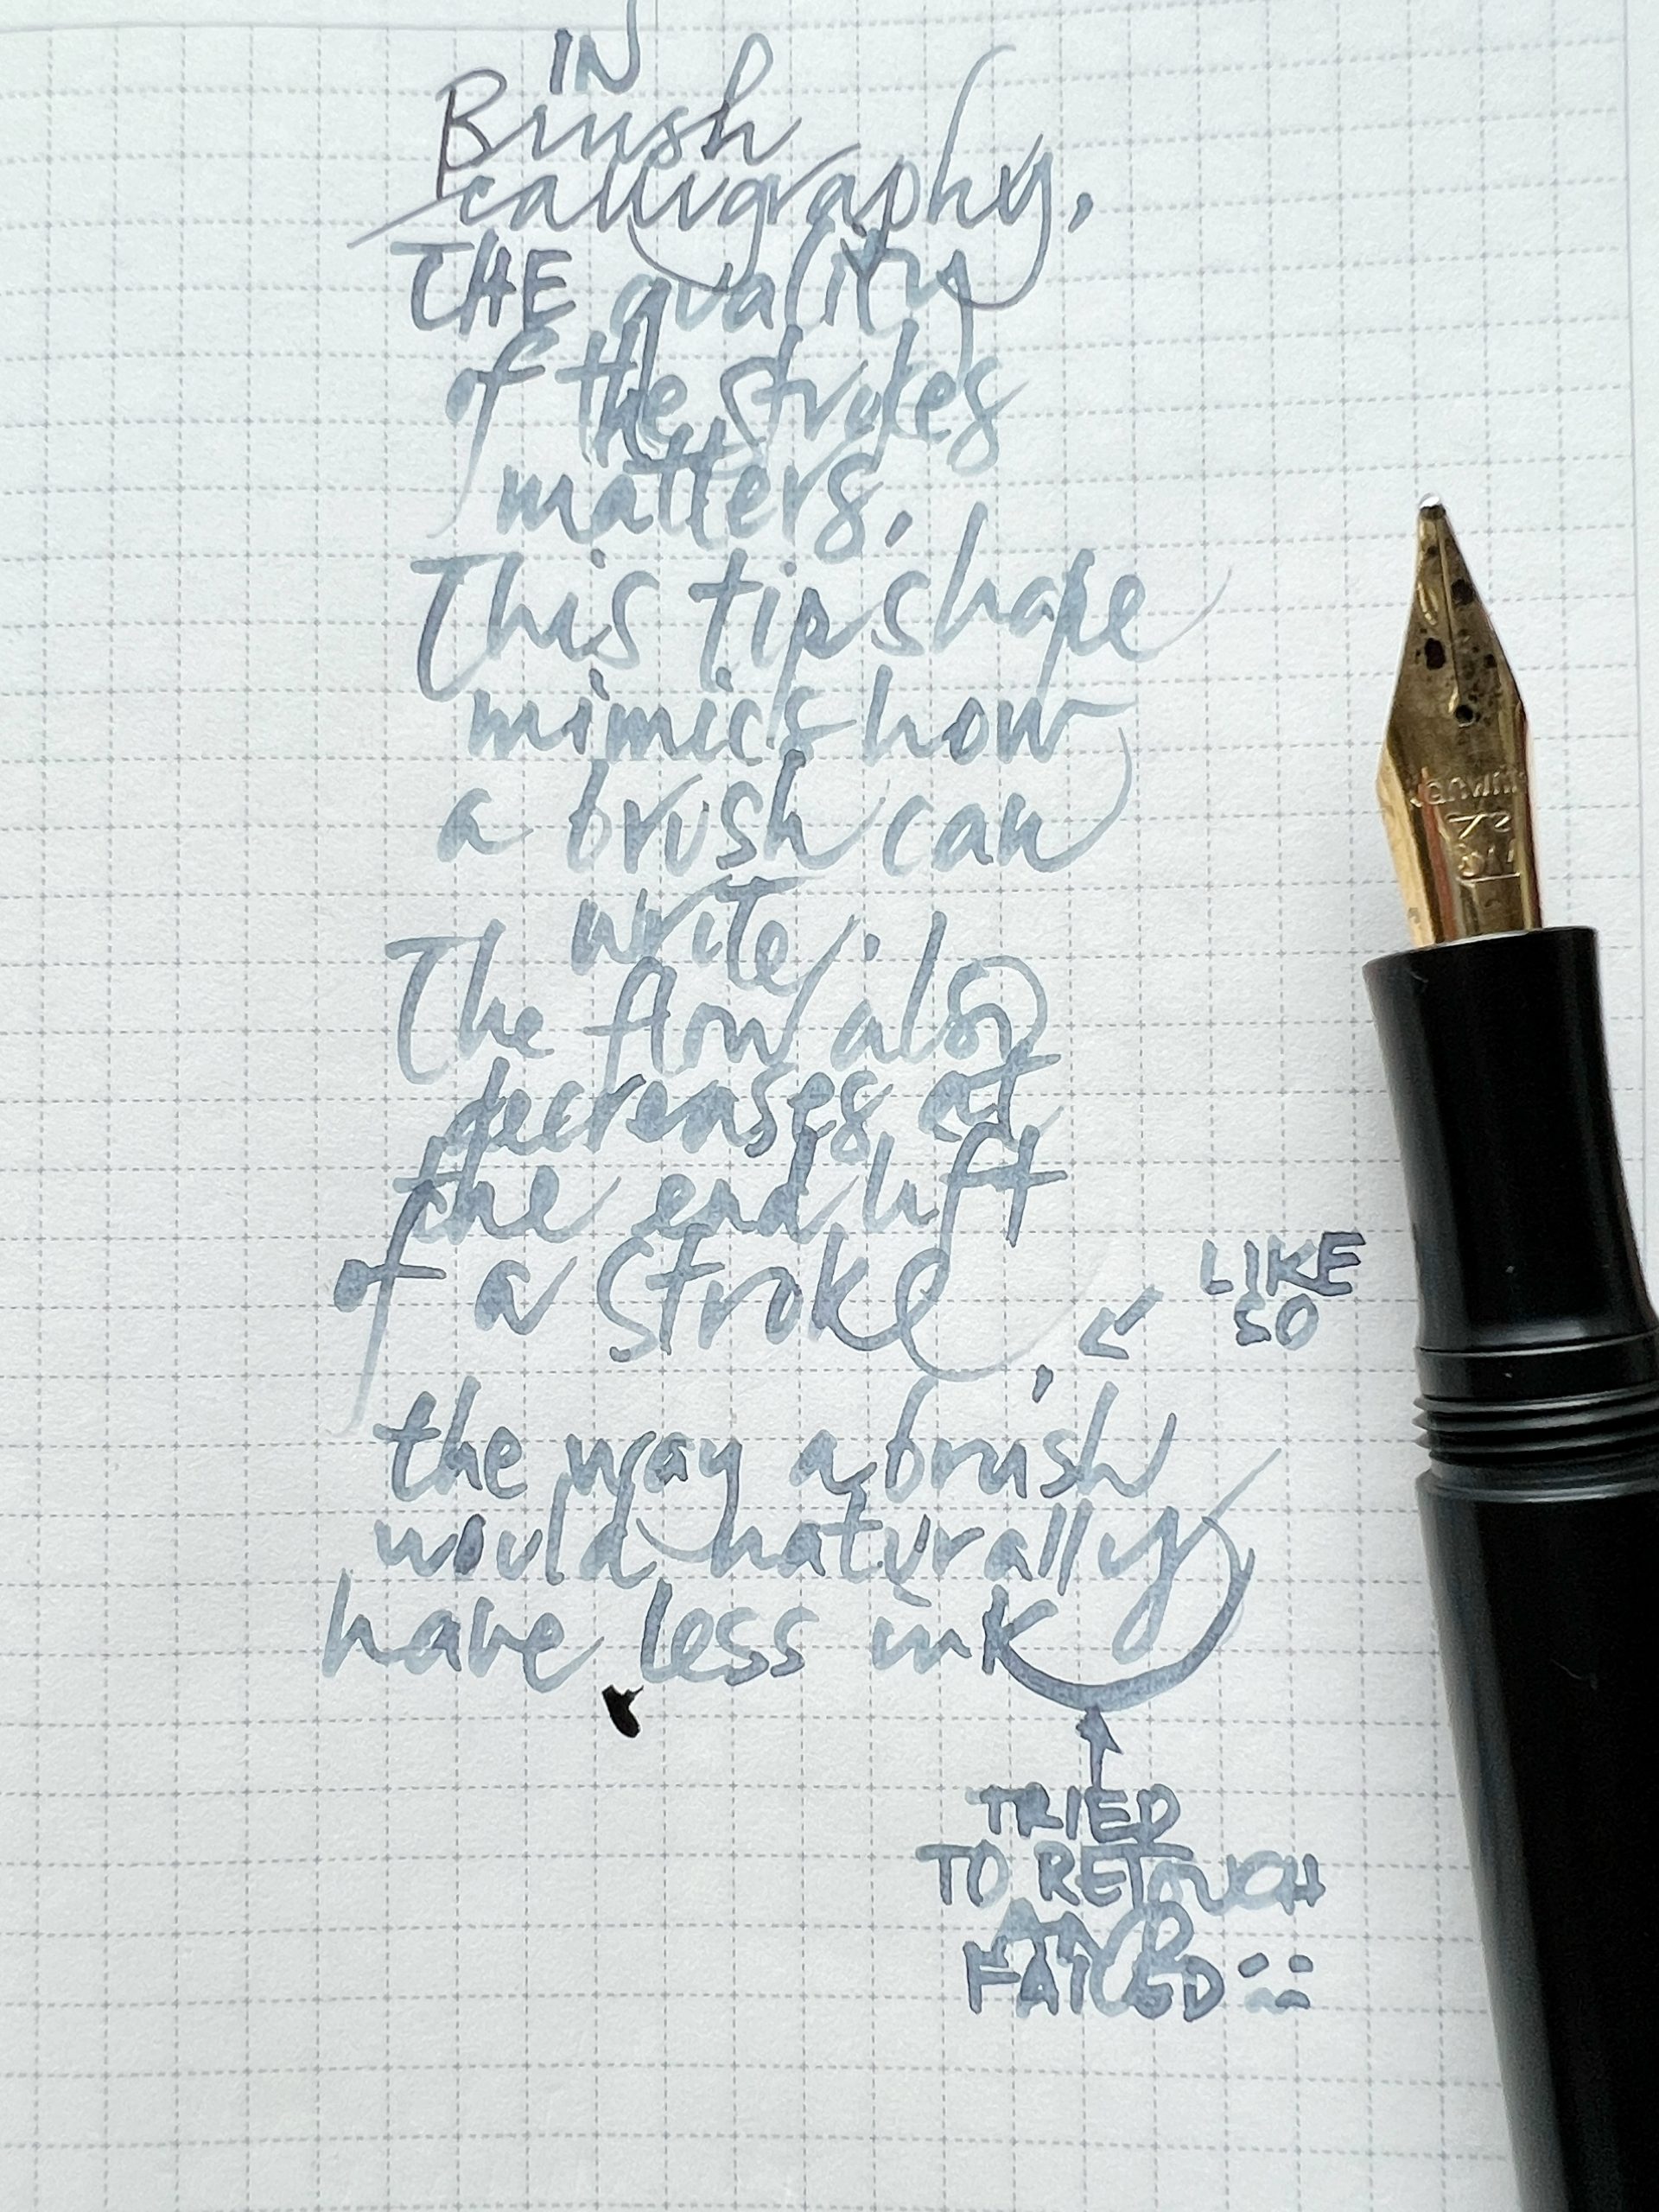 IN
Brush
calligraphy,
THE quality
of the strokes
matters,
This tip shape
mimics how
a brush can
write.
The flow also
decreases at
the end lift
of a stroke,
LIKE
SO
the way a brush
would naturally
have less ink
TRIED
TO RETOUCH
AND
FAILED